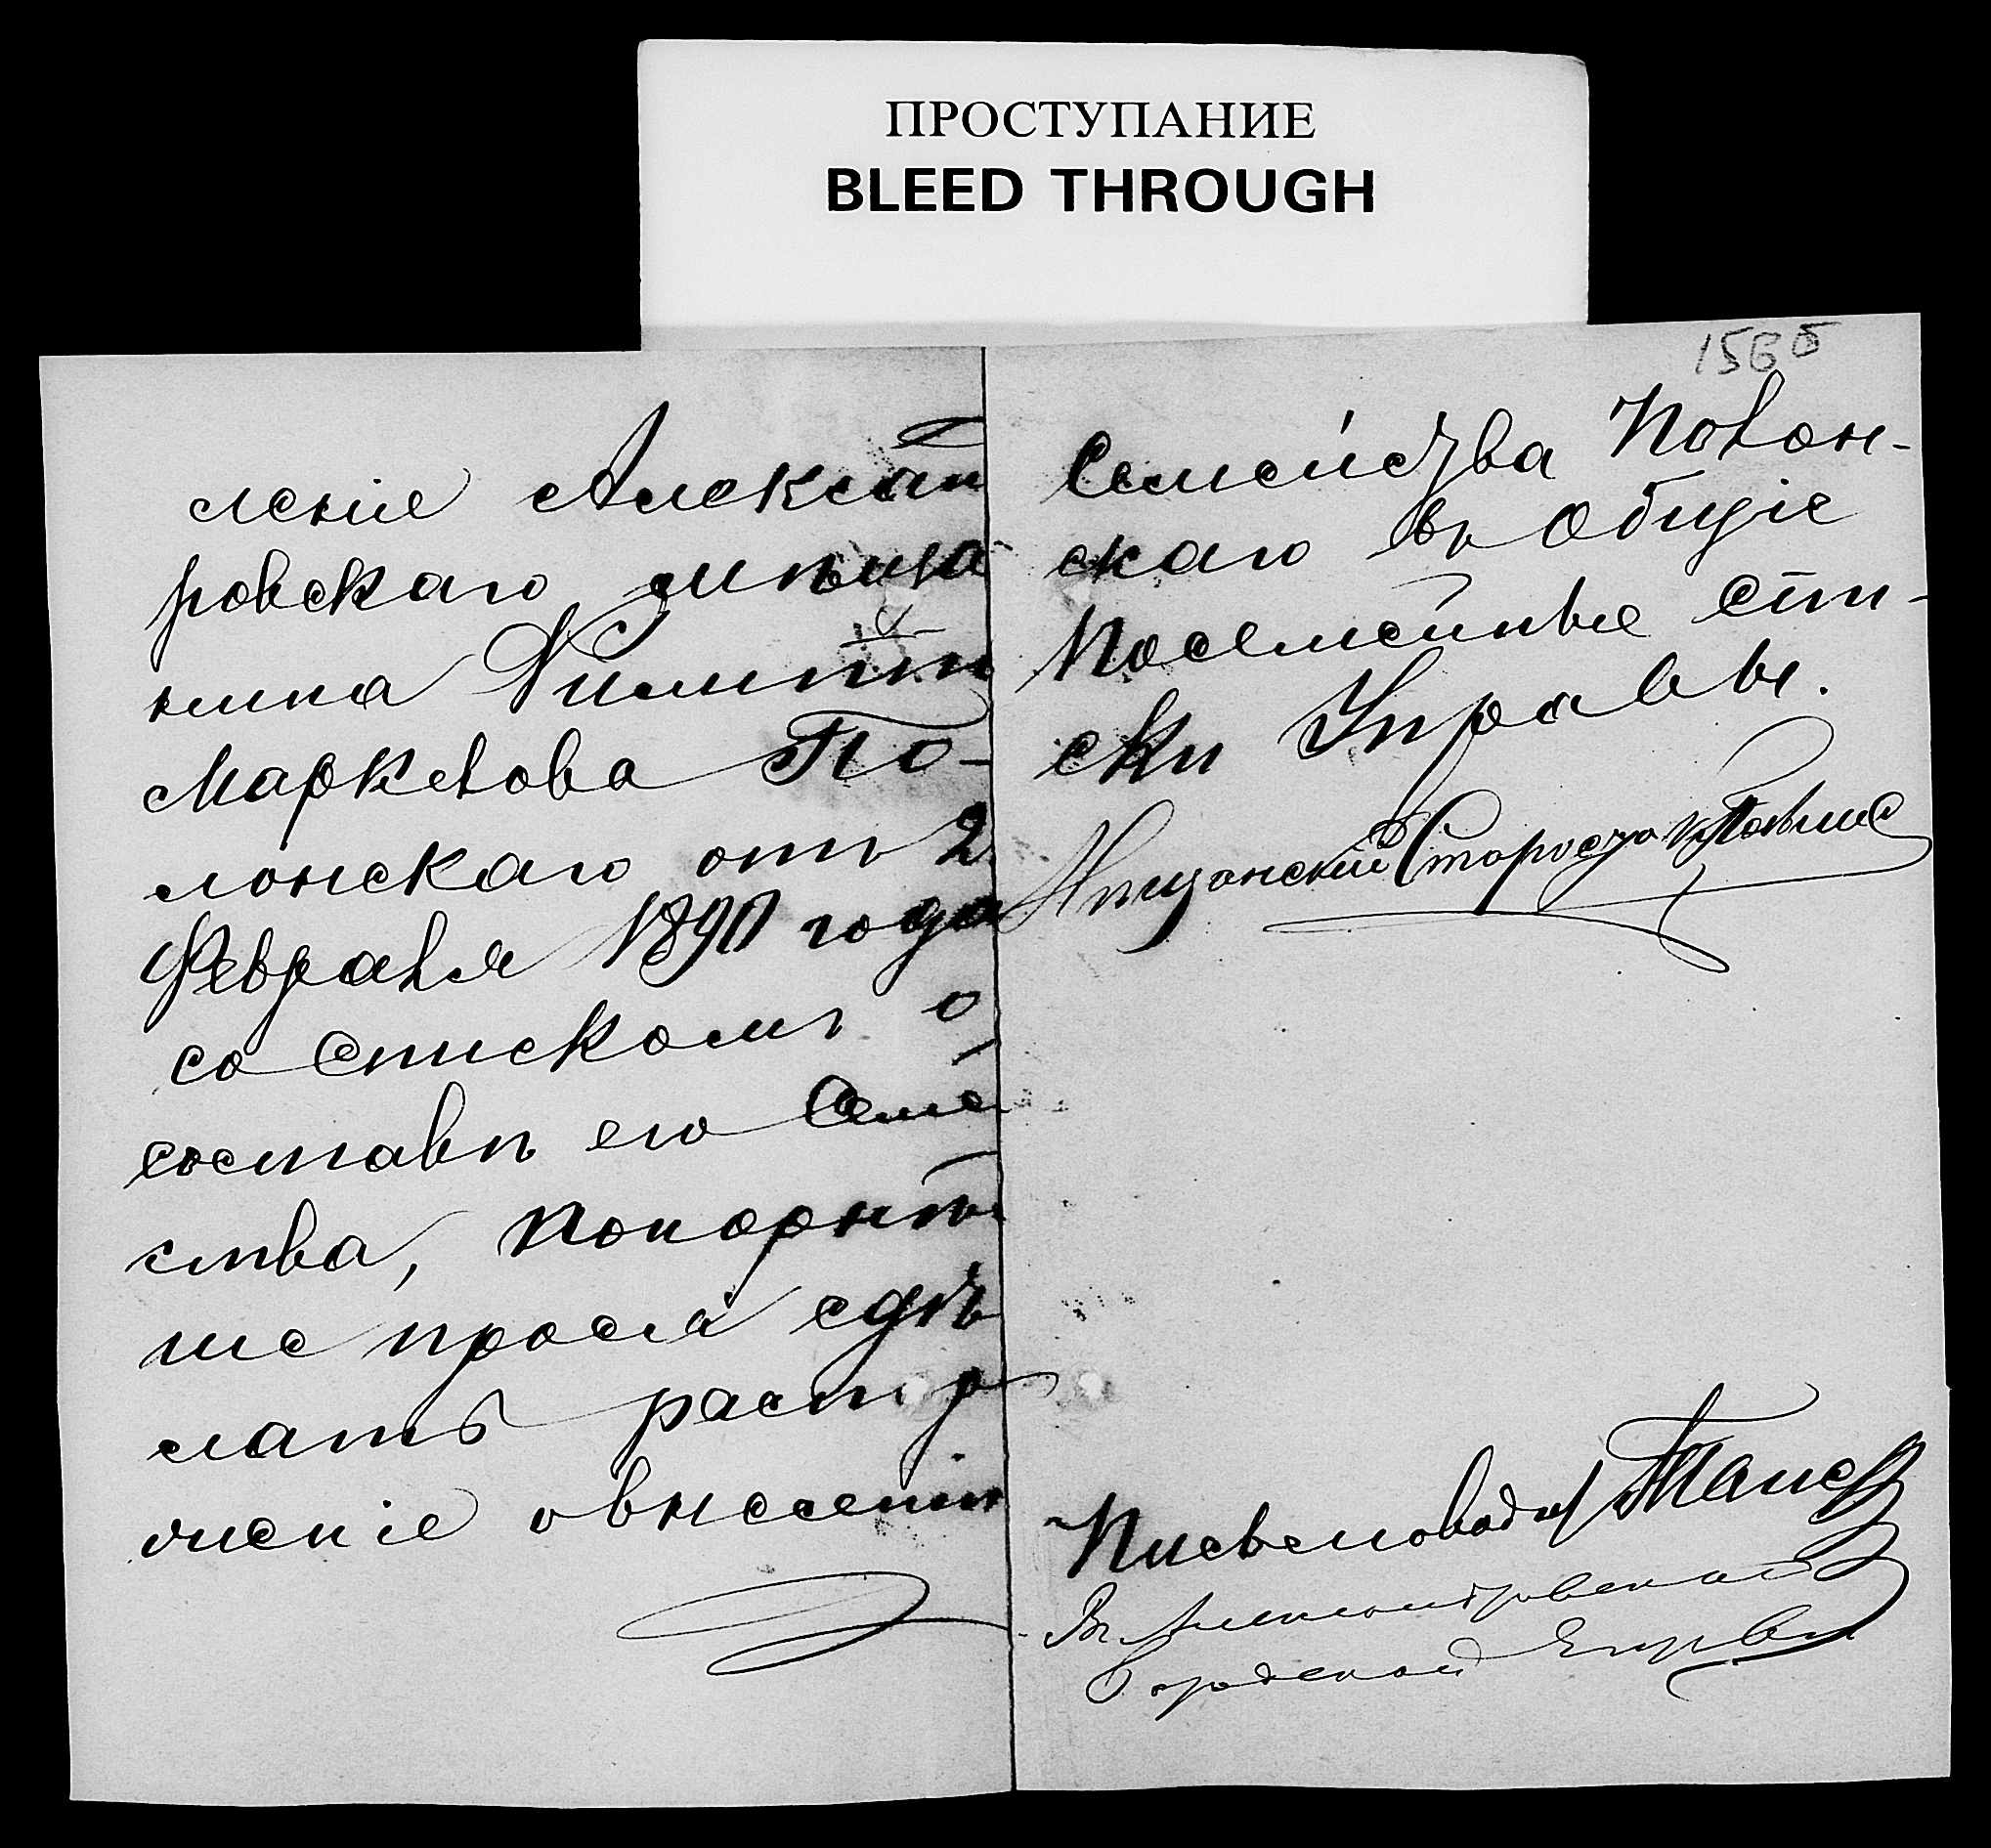 ПРОСТУПАНИЕ
BLEED THROUGH
156 б
леніе Алексан
ровскаго мѣща
нина Филиппа
Маркелова По-
лонскаго отъ 2
Февраля 1890 года
со Спискомъ о
составѣ его Семе
ства, покорнѣй
ше прося сдѣ
лать распор
яженіе о внесеніи
Семейства Полон-
скаго въ Общіе
Посемейные Спи-
ски Управы.
Мѣщанскій Староста
Письмоводи
Въ Александровской
Городской Управы